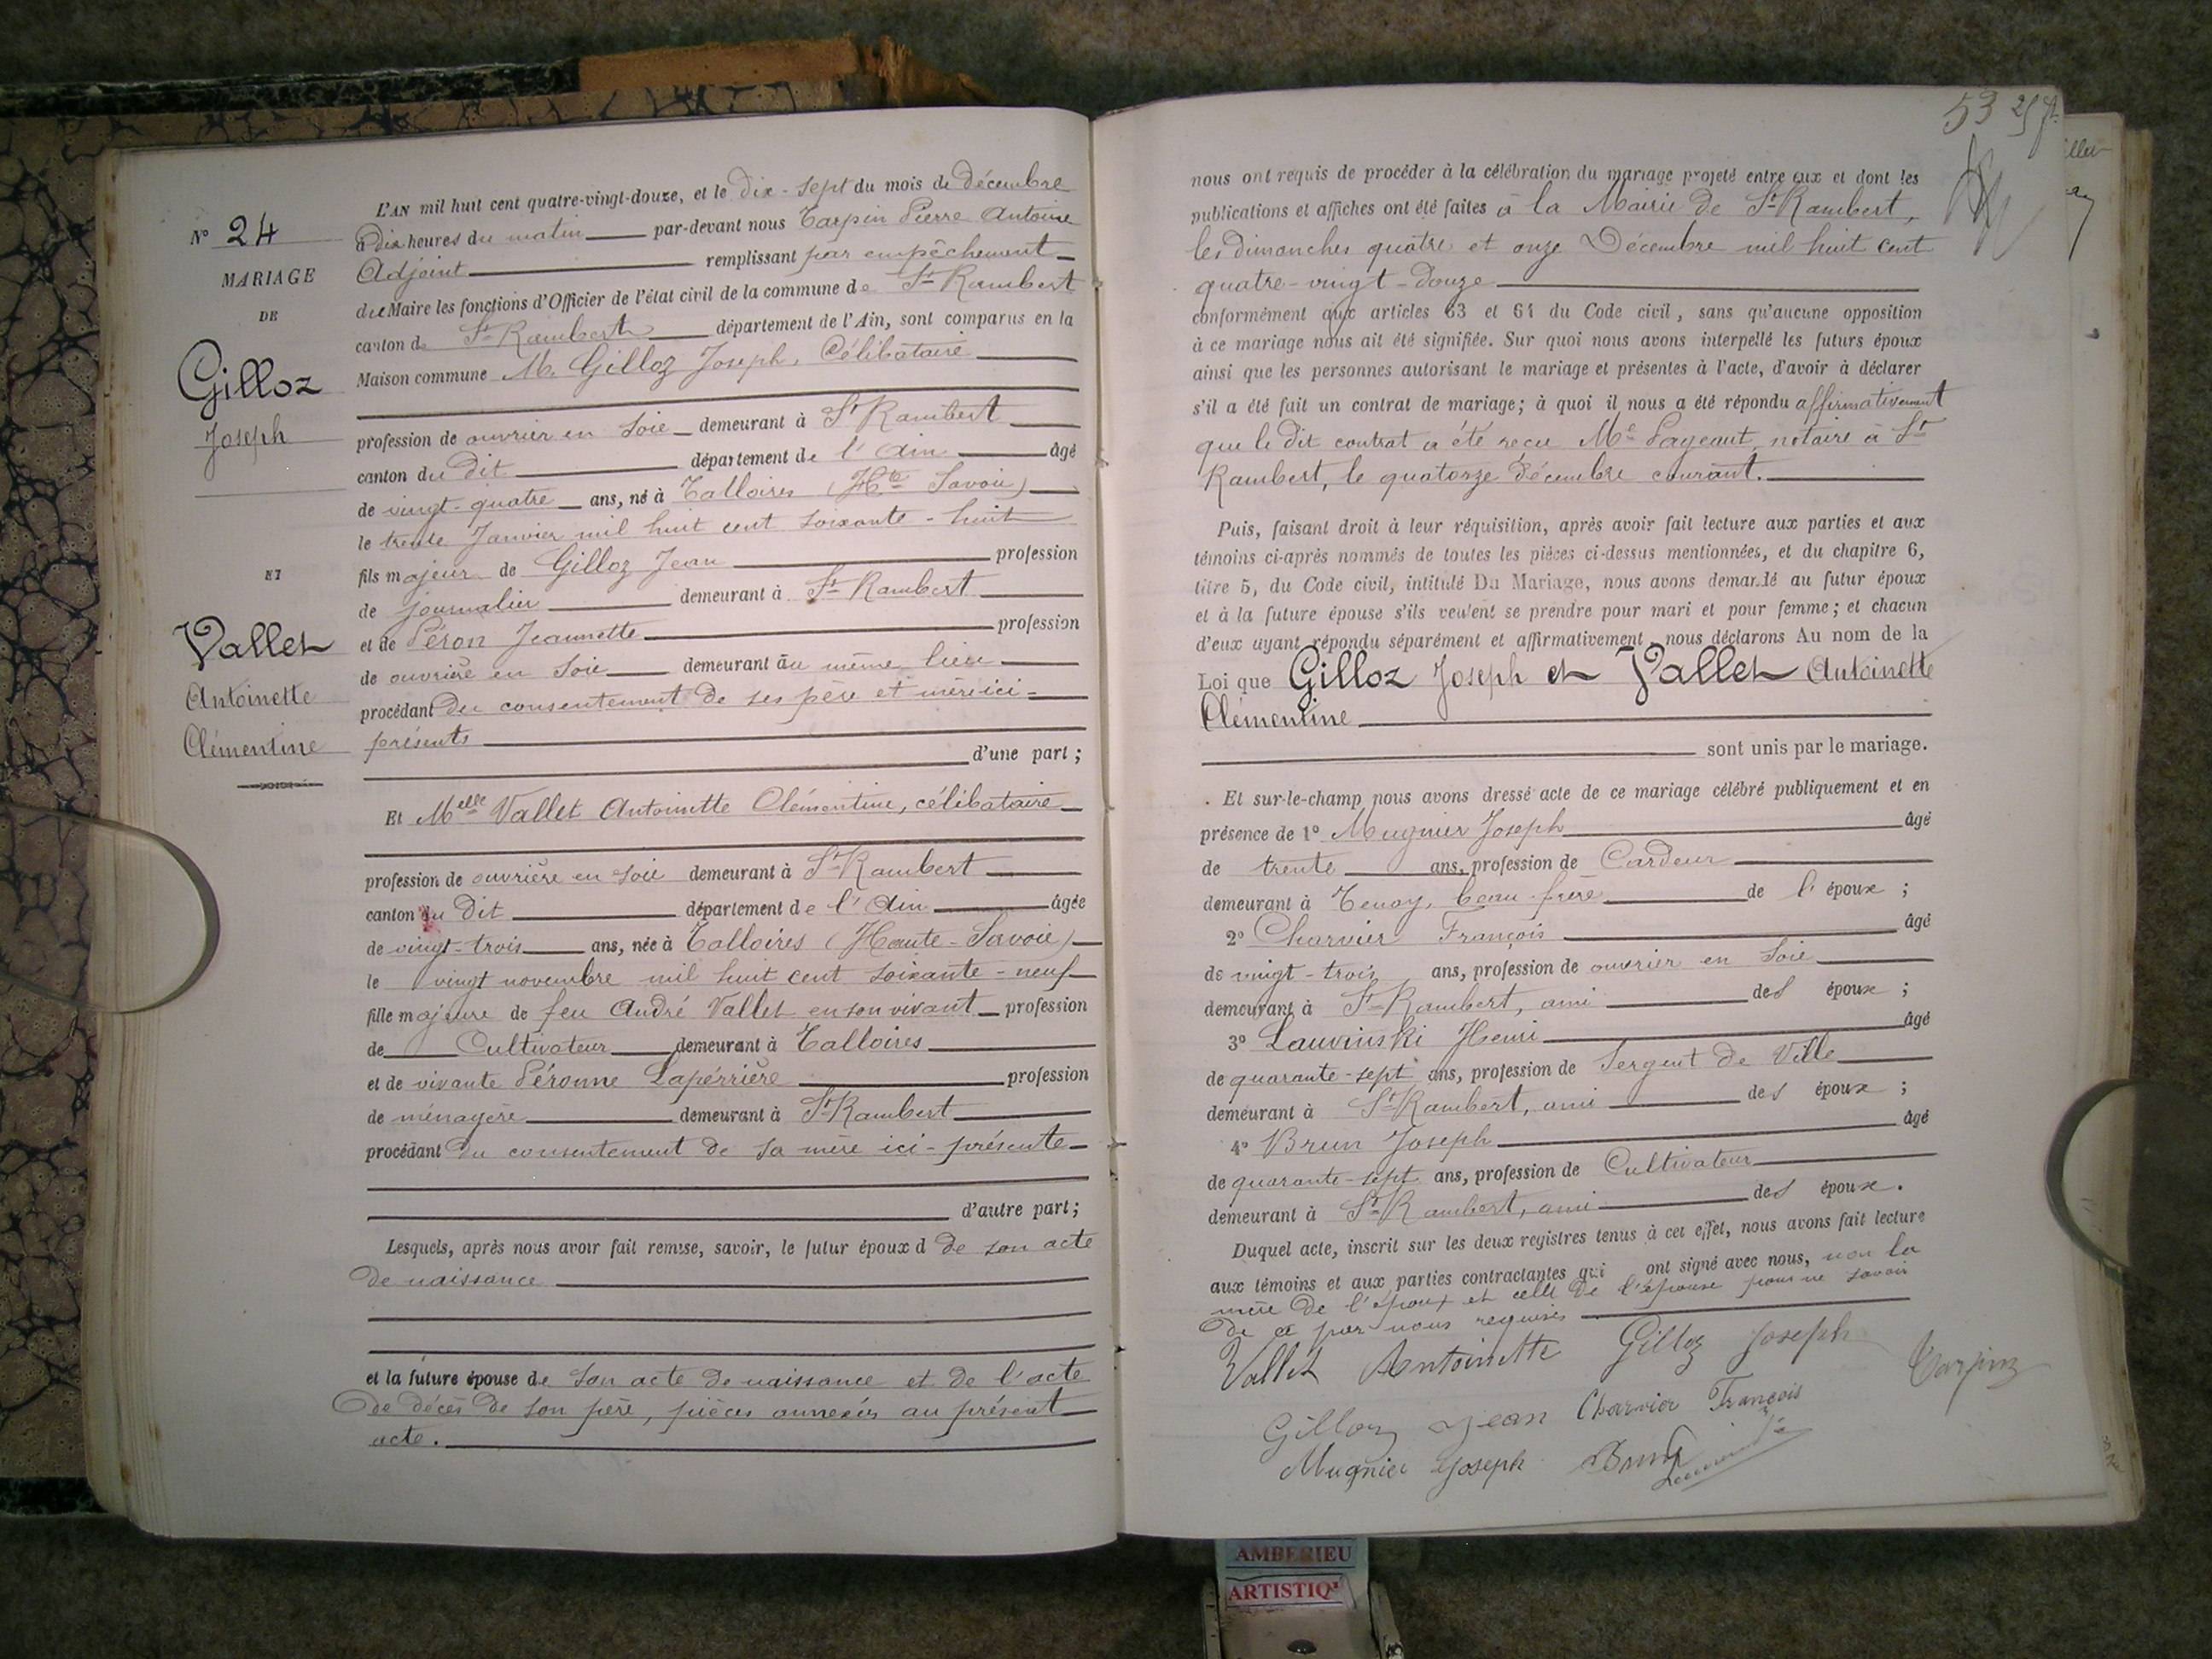 N° 24
MARIAGE
DE
Gilloz
Joseph
ET
Vallet
Antoinette
Clémentine
L'AN mil huit cent quatre-vingt-douze, et le dix-sept du mois de décembre
à dix heures du matin par-devant nous Tarpin Pierre Antoine
Adjoint remplissant par empêchement
du Maire les fonctions d'Officier de l'état civil de la commune de St Rambert
canton de St Rambert département de l'Ain, sont comparus en la
Maison commune M. Gilloz Joseph, Célibataire
profession de ouvrier en soie demeurant à St Rambert
canton du dit département de l'Ain âgé
de vingt-quatre ans, né à Talloires (Hte Savoie)
le trente Janvier mil huit cent soixante-huit
fils majeur de Gilloz Jean profession
de journalier demeurant à St Rambert
et de Péron Jeannette profession
de ouvrière en soie demeurant au même lieu
procédant du consentement de ses père et mère ici-
présents
d'une part;
Et Melle Vallet Antoinette Clémentine, célibataire
profession de ouvrière en soie demeurant à St Rambert
canton du dit département de l'Ain âgée
de vingt-trois ans, née à Talloires (Haute-Savoie)
le vingt novembre mil huit cent soixante-neuf
fille majeure de feu André Vallet en son vivant profession
de Cultivateur demeurant à Talloires
et de vivante Péronne Lapérrière profession
de ménagère demeurant à St Rambert
procédant du consentement de sa mère ici-présente
d'autre part;
Lesquels, après nous avoir fait remise, savoir, le futur époux d de son acte
de naissance
et la future épouse de son acte de naissance et de l'acte
de décès de son père, pièces annexées au présent
acte.
53
nous ont requis de procéder à la célébration du mariage projeté entre eux et dont les
publications et affiches ont été faites à la Mairie de St Rambert,
les dimanches quatre et onze Décembre mil huit cent
quatre-vingt-douze
conformément aux articles 63 et 64 du Code civil, sans qu'aucune opposition
à ce mariage nous ait été signifiée. Sur quoi nous avons interpellé les futurs époux
ainsi que les personnes autorisant le mariage et présentes à l'acte, d'avoir à déclarer
s'il a été fait un contrat de mariage; à quoi il nous a été répondu affirmativement
que le dit contrat a été recu Me Pageaut, notaire à St
Rambert, le quatorze décembre courant.
Puis, faisant droit à leur réquisition, après avoir fait lecture aux parties et aux
témoins ci-après nommés de toutes les pièces ci-dessus mentionnées, et du chapitre 6,
titre 5, du Code civil, intitulé Du Mariage, nous avons demandé au futur époux
et à la future épouse s'ils veulent se prendre pour mari et pour femme; et chacun
d'eux ayant répondu séparément et affirmativement, nous déclarons Au nom de la
Loi que Gilloz Joseph et Vallet Antoinette
Clémentine
sont unis par le mariage.
Et sur-le-champ nous avons dressé acte de ce mariage célébré publiquement et en
présence de 1° Mugnier Joseph âgé
de trente ans, profession de Cardeur
demeurant à Tenay, beau-frère de l'époux;
2° Charvier François âgé
de vingt-trois ans, profession de ouvrier en soie
demeurant à St Rambert, ami des époux;
3° Lauvinski Henri âgé
de quarante-sept ans, profession de Sergent de Ville
demeurant à St Rambert, ami des époux;
4° Brun Joseph âgé
de quarante-sept ans, profession de Cultivateur
demeurant à St Rambert, ami des époux.
Duquel acte, inscrit sur les deux registres tenus à cet effet, nous avons fait lecture
aux témoins et aux parties contractantes qui ont signé avec nous, non la
mère de l'époux et celle de l'épouse pour ne savoir
de ce par nous requises
Vallet Antoinette Gilloz Joseph
Tarpin
Gilloz Jean Charvier François
Mugnier Joseph Brun
AMBERIEU
ARTISTIQ